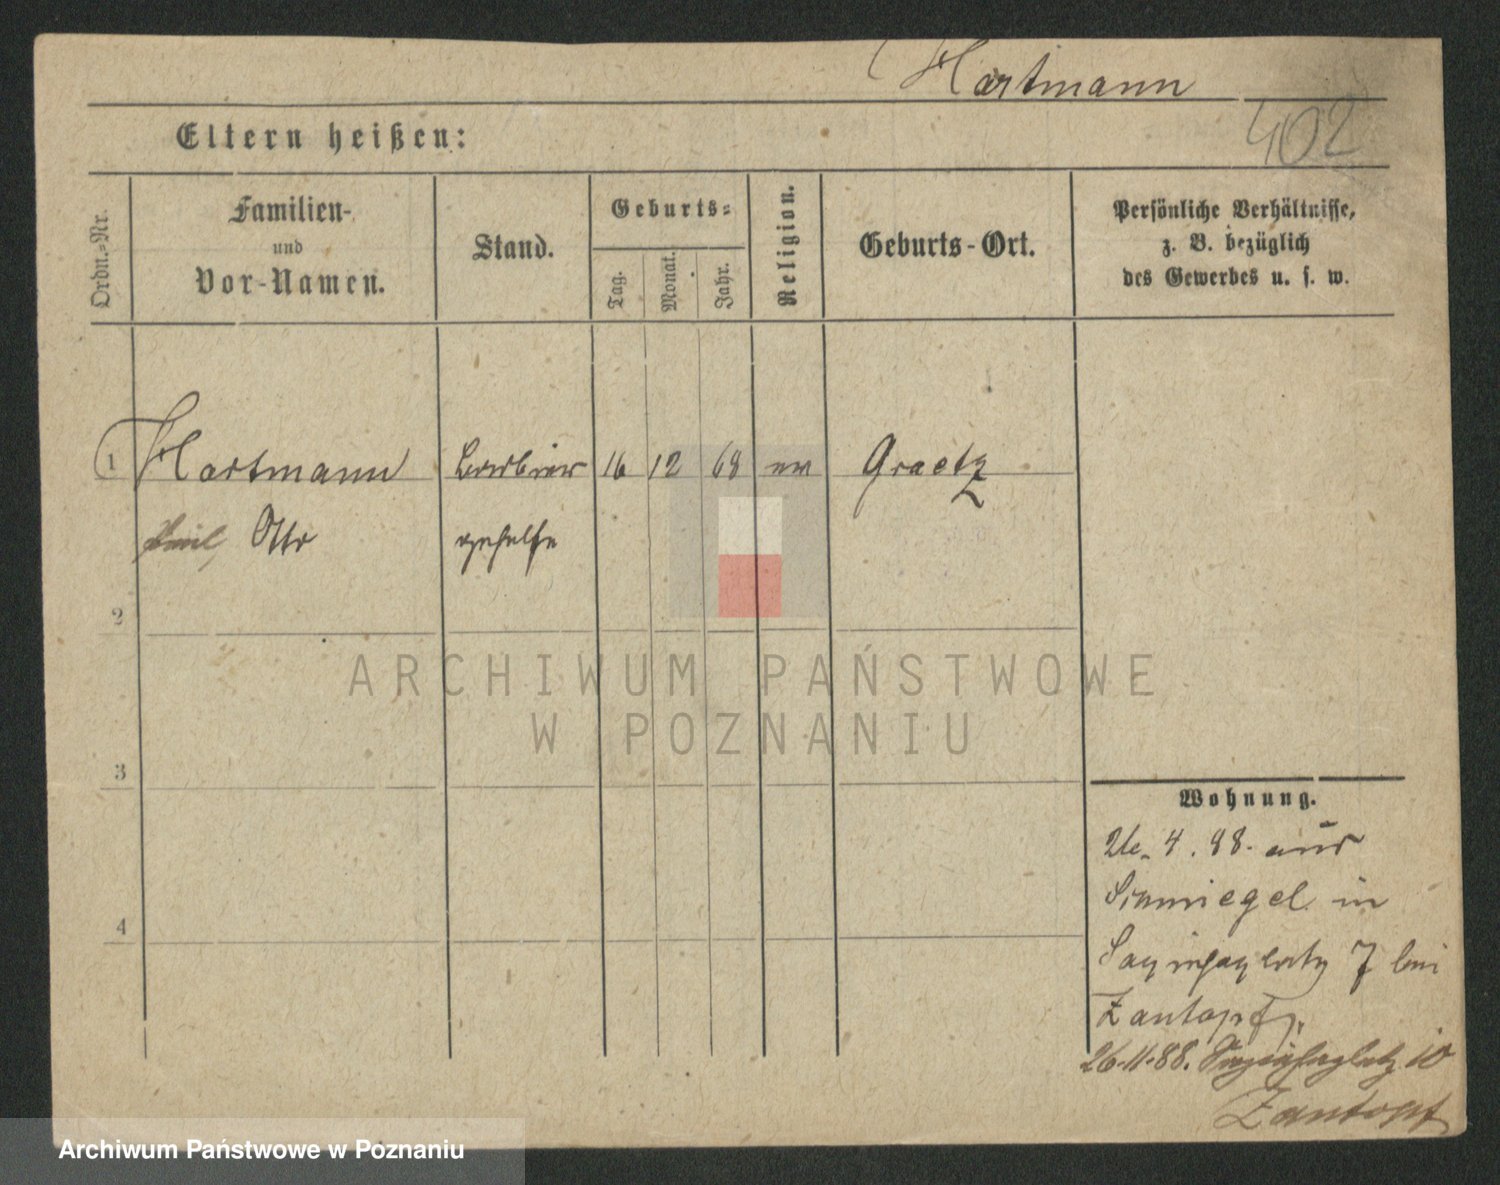 Hartmann
402
Eltern heißen:
Ordn.-Nr.
Familien-
und
Vor-Namen.
Stand.
Geburts-
Tag.
Monat.
Jahr.
Religion.
Geburts-Ort.
Persönliche Verhältnisse,
z. B. bezüglich
des Gewerbes u. s. w.
1 Hartmann Barbier 16 12 68 ev Graetz
Emil, Otto gehilfe
2
3
4
Wohnung.
4. 88. aus
Schmiegel in
Sapiehaplatz 7 bei
Zantopf,
26.11.88. Sapiehaplatz 10
Zantopf
ARCHIWUM PAŃSTWOWE
W POZNANIU
Archiwum Państwowe w Poznaniu